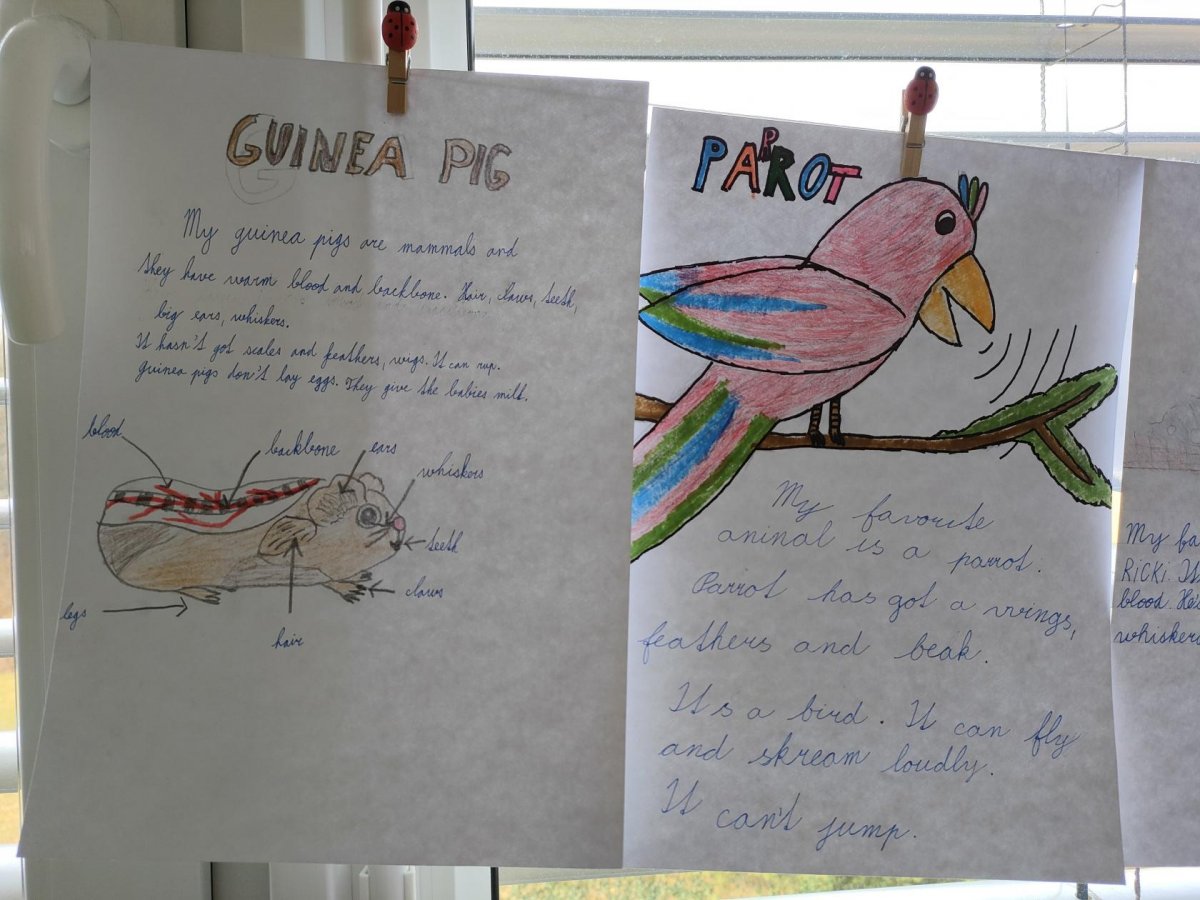 GUINEA PIG
My guinea pigs are mammals and
they have warm blood and backbone. Hair, claws, teeth,
big ears, whiskers.
It hasn't got scales and feathers, wigs. It can run.
guinea pigs don't lay eggs. They give the babies milk.
blood
backbone
ears
whiskers
teeth
claws
legs
hair
PARROT
My favorite
animal is a parrot.
Parrot has got a wings,
feathers and beak.
It's a bird. It can fly
and skream loudly.
It can't jump.
My fa
RiCKi. It
blood. He's
whiskers